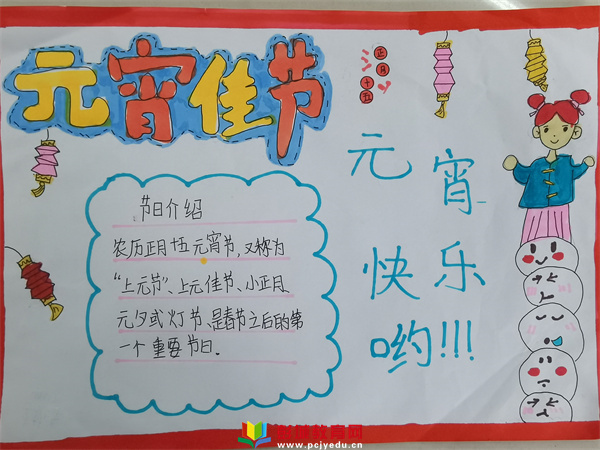 元宵佳节
正月
十五
元宵
快乐
哟!!!
节日介绍
农历正月十五元宵节,又称为
“上元节”、上元佳节、小正月、
元夕或灯节、是春节之后的第
一个重要节日。
教育网
www.pcjyedu.cn